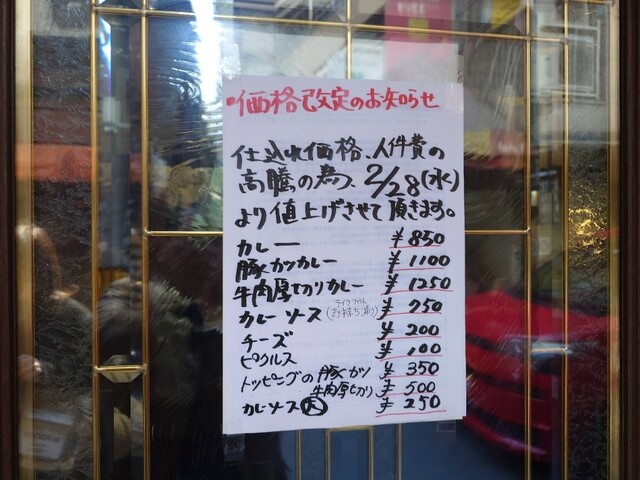 価格改定のお知らせ
仕込れ価格、人件費の
高騰の為、2/28(水)
より値上げさせて頂きます。
カレー ¥850
豚カツカレー ¥1100
牛肉厚切りカレー ¥1250
カレーソース テイクアウト(お持ち帰り) ¥750
チーズ ¥200
ピクルス ¥100
トッピングの 豚カツ ¥350
牛肉厚切り ¥500
カレーソース大 ¥250